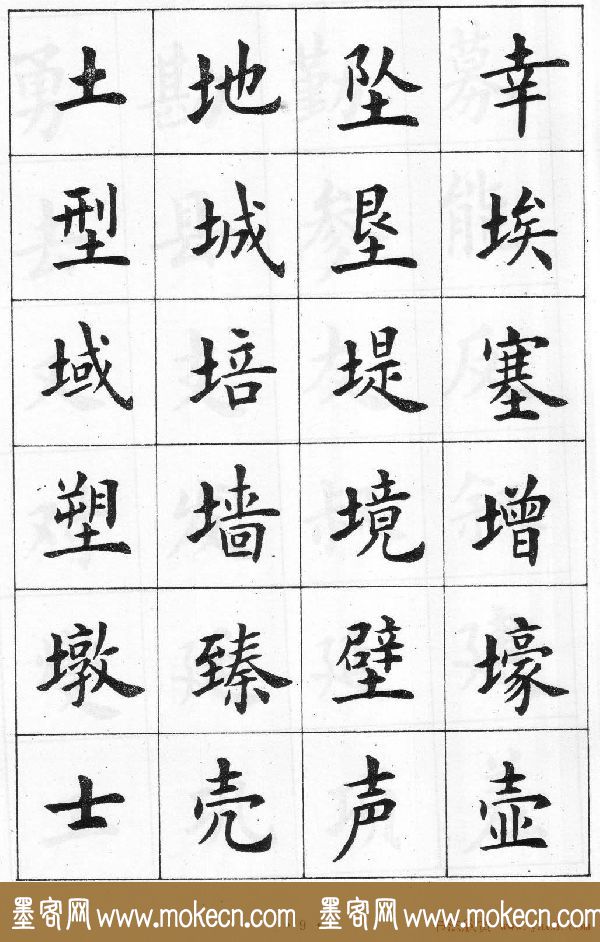 土 地 坠 幸
型 城 垦 埃
域 培 堤 塞
塑 墙 境 增
墩 臻 壁 壕
士 壳 声 壶
墨客网 www.mokecn.com 墨客网 www.mokecn.com